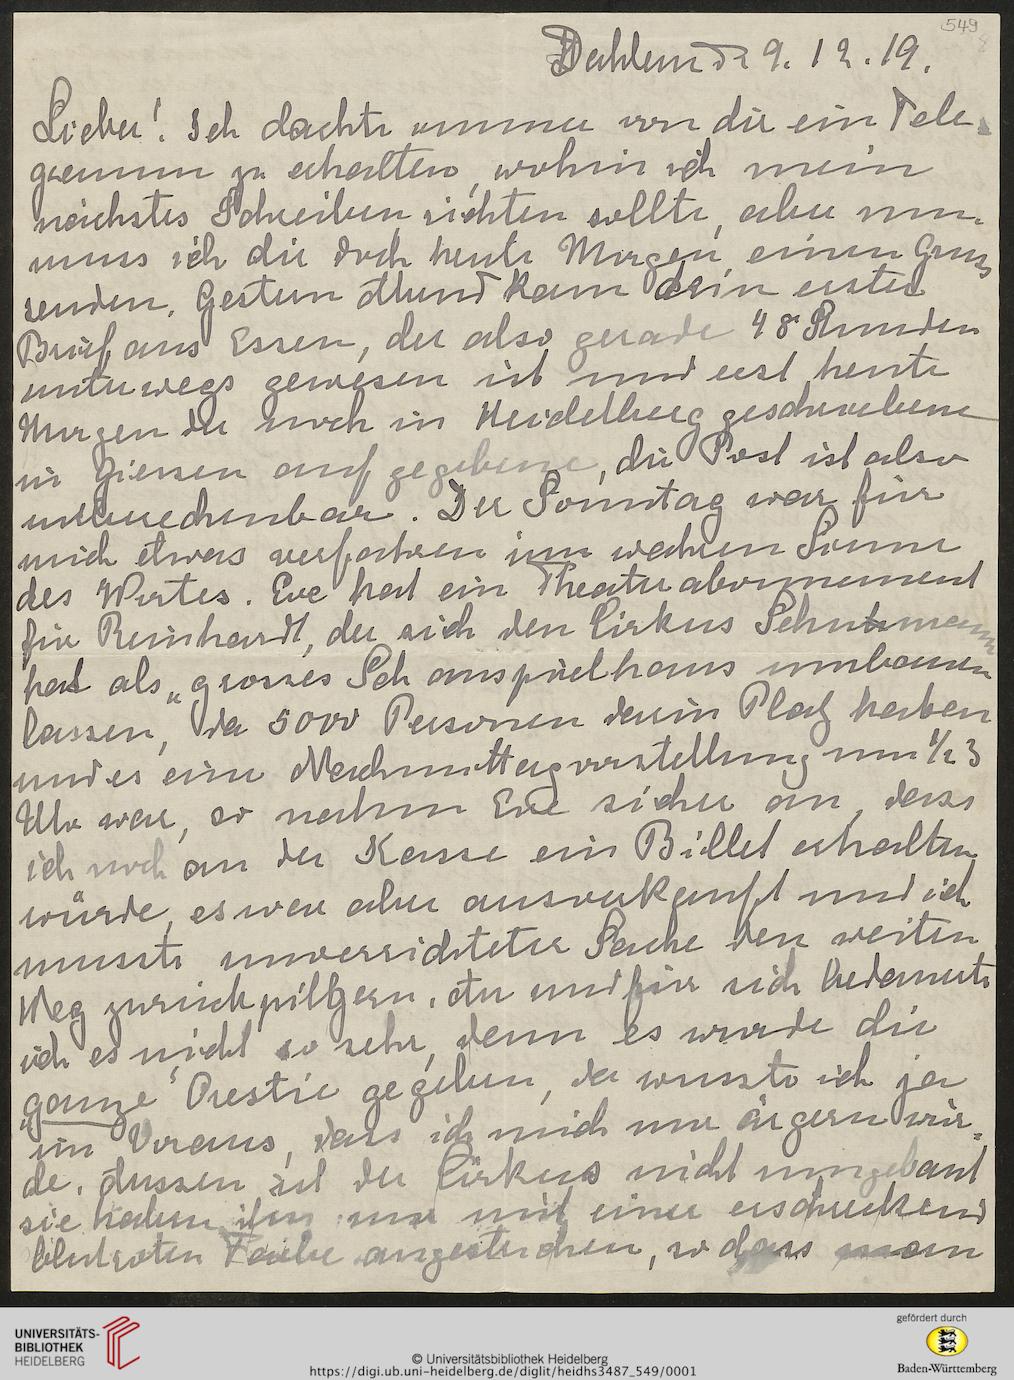 549
Dahlem d. 9. 12. 19.
Lieber! Ich dachte immer von dir ein Tele-
gramm zu erhalten, wohin ich mein
nächstes Schreiben richten sollte, aber nun
muss ich dir doch heute Morgen einen Gruss
senden. Gestern Abend kam dein erster
Brief aus Essen, der also gerade 48 Stunden
unterwegs gewesen ist und erst heute
Morgen der noch in Heidelberg geschriebene
in Giessen aufgegebene, die Post ist also
unberechenbar. Der Sonntag war für
mich etwas verfahren im wahren Sinne
des Wortes. Eve hat ein Theaterabonnement
für Reinhardt, der sich den Cirkus Schumann
hat als „grosses Schauspielhaus umbauen
lassen, da 5000 Personen darin Platz haben
und es eine Nachmittagvorstellung um 1/2 3
Uhr war, so nahm Eve sicher an, dass
ich noch an der Kasse ein Billet erhalten
würde, es war aber ausverkauft und ich
musste unverrichteter Sache den weiten
Weg zurückpilgern. An und für sich bedauerte
ich es nicht so sehr, denn es wurde die
ganze Orestie gegeben, da wusste ich ja
im Voraus, dass ich mich nur ärgern wür-
de. Aussen ist der Cirkus nicht umgebaut
sie haben ihn nur mit einer erschreckend
blutroten Farbe angestrichen, so dass man
UNIVERSITÄTS-
BIBLIOTHEK
HEIDELBERG
© Universitätsbibliothek Heidelberg
https://digi.ub.uni-heidelberg.de/diglit/heidhs3487_549/0001
gefördert durch
Baden-Württemberg